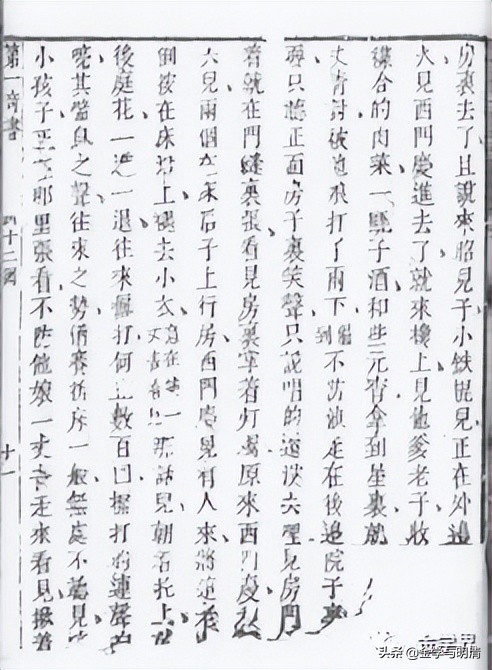 房裏去了且說來昭兒子小鉄棍兒正在外邉
火見西門慶進去了就來樓上見他爹老子收
雜合的肉菜一甌子酒和些元宵拿到屋裏就
丈青討被他娘打了兩下 不防 走在後邉院子裏
耍只聽正面房子裏笑聲只說唱的還沒去哩見房門
着就在門縫裏張看見房裏掌着灯燭原來西門慶
六兒兩個在床沿子上行房西門慶見有人來將
倒按在床沿上褪去小衣 那話兒朝着托上
後庭花一進一退往來打何止數百回打的連聲
喨其喘息之聲往來之勢猶賽折床一般無處不聽見
小孩子正在那里張看不防他娘一丈青走來看見揪着
第一奇書 四十二回 十一
头条 @金学与明清